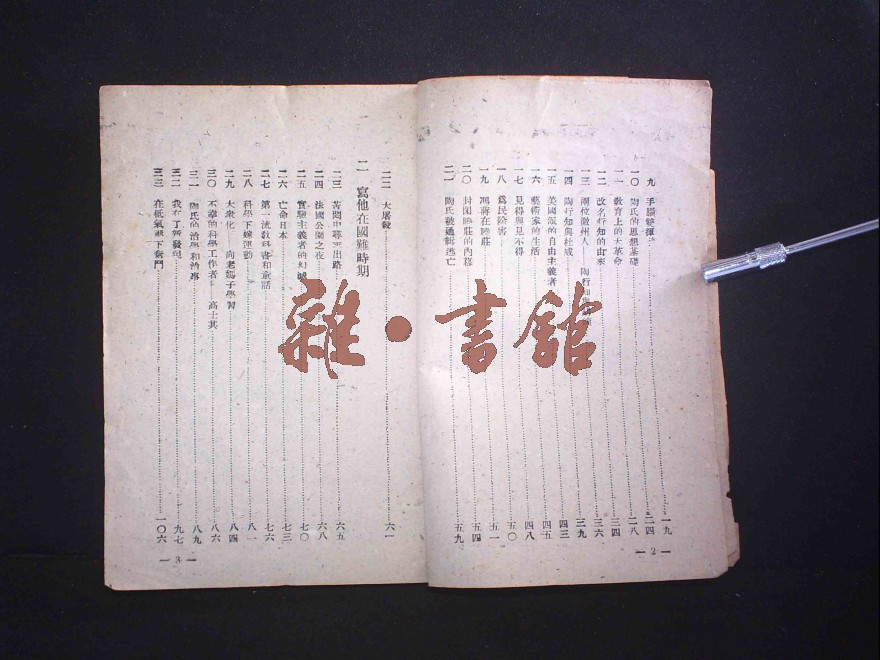 九 手腦雙揮 一九
一〇 陶氏的思想基礎 二四
一一 教育上的大革命 二八
一二 改名行知的由來 三四
一三 兩位徽州人——陶行知 三六
一四 陶行知與杜威 三九
一五 美國式的自由主義者 四三
一六 藝術家的生活 四五
一七 見得與見不得 四八
一八 爲民除害 五〇
一九 馮將在曉莊 五一
二〇 封閉曉莊的內幕 五四
二一 陶氏被通緝逃亡 五九
— 2 —
二二 大屠殺 六一
二 寫他在國難時期
二三 苦悶中尋求出路 六五
二四 法國公園之夜 六八
二五 實驗主義者的幻滅 七〇
二六 亡命日本 七三
二七 第一流教科書和童話 七六
二八 科學下嫁運動 八一
二九 大衆化——向老媽子學習 八四
三〇 不幸的科學工作者——高士其 八六
三一 陶氏的治學和治事 八九
三二 我有了新發現 九七
三三 在低氣壓下奮鬥 一〇六
— 3 —
雜·書館